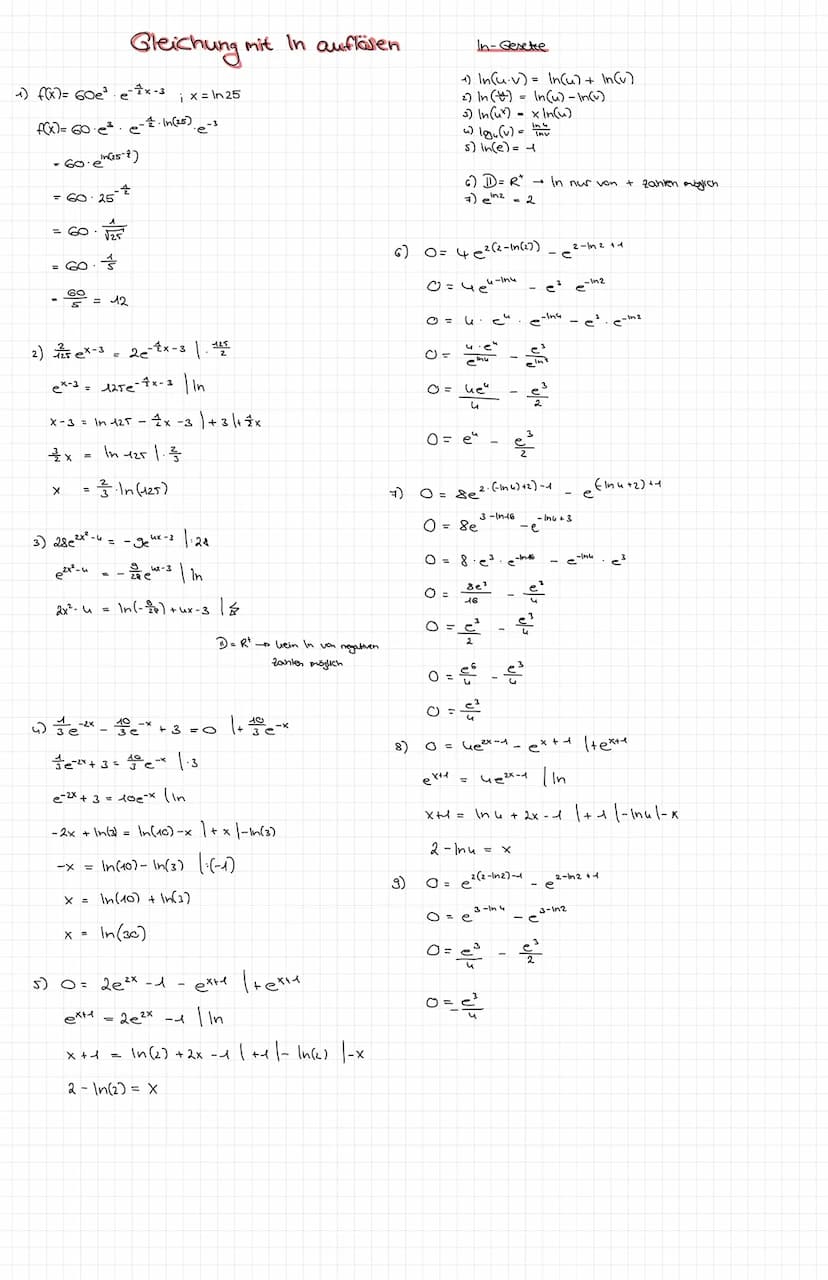 Gleichung mit ln auflösen
ln-Gesetze
1) ln(u·v) = ln(u) + ln(v)
2) ln(u/v) = ln(u) - ln(v)
3) ln(uˣ) = x ln(u)
4) logᵥ(u) = ln u / ln v
5) ln(e) = 1
6) D = R⁺ → ln nur von + zahlen möglich
7) e^(ln2) = 2
1) f(x) = 60e³ · e^(-1/2x-3) ; x = ln25
f(x) = 60·e³ · e^(-1/2·ln(25)) · e^(-3)
= 60·e^(ln(25^(-1/2)))
= 60 · 25^(-1/2)
= 60 · 1/√25
= 60 · 1/5
= 60/5 = 12
2) 2/125 e^(x-3) = 2e^(-1/2x-3) | · 125/2
e^(x-3) = 125e^(-1/2x-3) | ln
x-3 = ln 125 - 1/2x -3 | +3 | +1/2x
3/2x = ln 125 | · 2/3
x = 2/3 · ln(125)
3) 28e^(2x²-4) = -9e^(4x-3) | · 28
e^(2x²-4) = -9/28 e^(4x-3) | ln
2x²-4 = ln(-9/28) + 4x-3 | ↯
D = R⁺ → kein ln von negativen
zahlen möglich
4) 1/3 e^(-2x) - 10/3 e^(-x) + 3 = 0 | + 10/3 e^(-x)
1/3 e^(-2x) + 3 = 10/3 e^(-x) | ·3
e^(-2x) + 3 = 10e^(-x) | ln
-2x + ln(3) = ln(10) - x | + x | -ln(3)
-x = ln(10) - ln(3) | ·(-1)
x = ln(10) + ln(3)
x = ln(30)
5) 0 = 2e^(2x) -1 - e^(x+1) | + e^(x+1)
e^(x+1) = 2e^(2x) -1 | ln
x+1 = ln(2) + 2x -1 | +1 | - ln(2) | -x
2 - ln(2) = x
6) 0 = 4e^(2(2-ln(2))) - e^(2-ln2+1)
0 = 4e^(4-ln4) - e³ e^(-ln2)
0 = 4 · e⁴ · e^(-ln4) - e³ · e^(-ln2)
0 = 4·e⁴/e^(ln4) - e³/e^(ln2)
0 = 4e⁴/4 - e³/2
0 = e⁴ - e³/2
7) 0 = 8e^(2·(-ln4)+2)-1) - e^(-ln4+2)+1
0 = 8e^(3-ln16) - e^(-ln4+3)
0 = 8·e³·e^(-ln16) - e^(-ln4) · e³
0 = 8e³/16 - e³/4
0 = e³/2 - e³/4
0 = e⁶/4 - e³/4
0 = e³/4
8) 0 = 4e^(2x-1) - e^(x+1) | +e^(x+1)
e^(x+1) = 4e^(2x-1) | ln
x+1 = ln4 + 2x - 1 | +1 | -ln4 | -x
2 - ln4 = x
9) 0 = e^(2(2-ln2)-1) - e^(2-ln2+1)
0 = e^(3-ln4) - e^(3-ln2)
0 = e³/4 - e³/2
0 = -e³/4